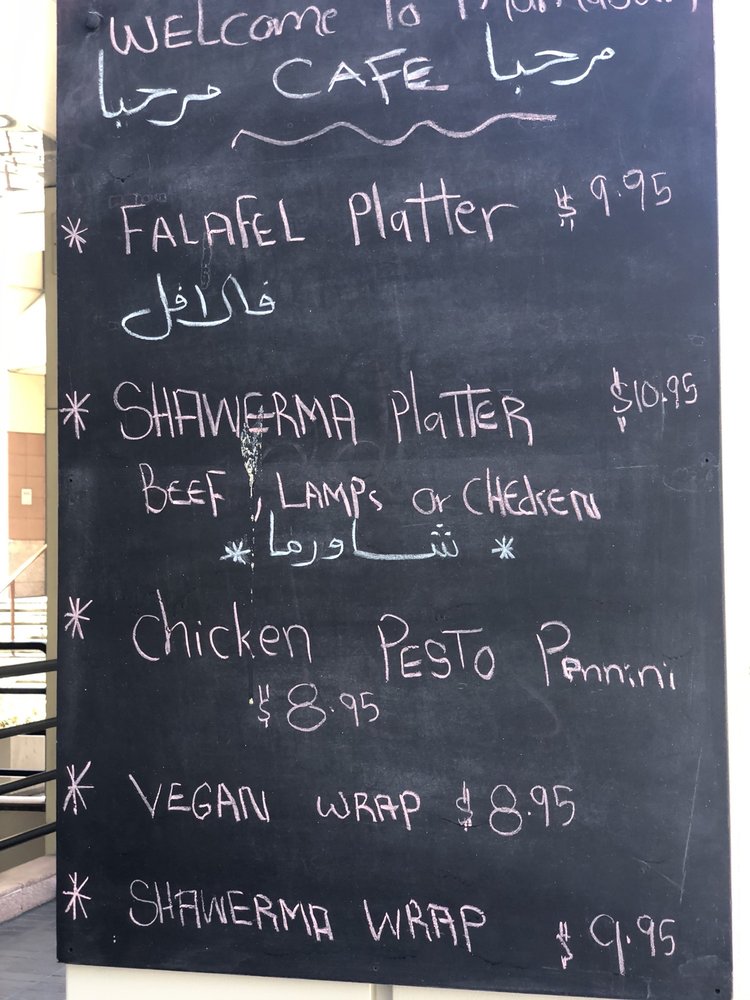 WELCOME To
مرحبا CAFE مرحبا
* FALAFEL Platter $9.95
فالافل
* SHAWERMA PlaTTER $10.95
BEEF, LAMPs or CHECKEN
* شاورما *
* chicken PESTO Pannini
$8.95
* VEGAN WRAP $8.95
* SHAWERMA WRAP $9.95